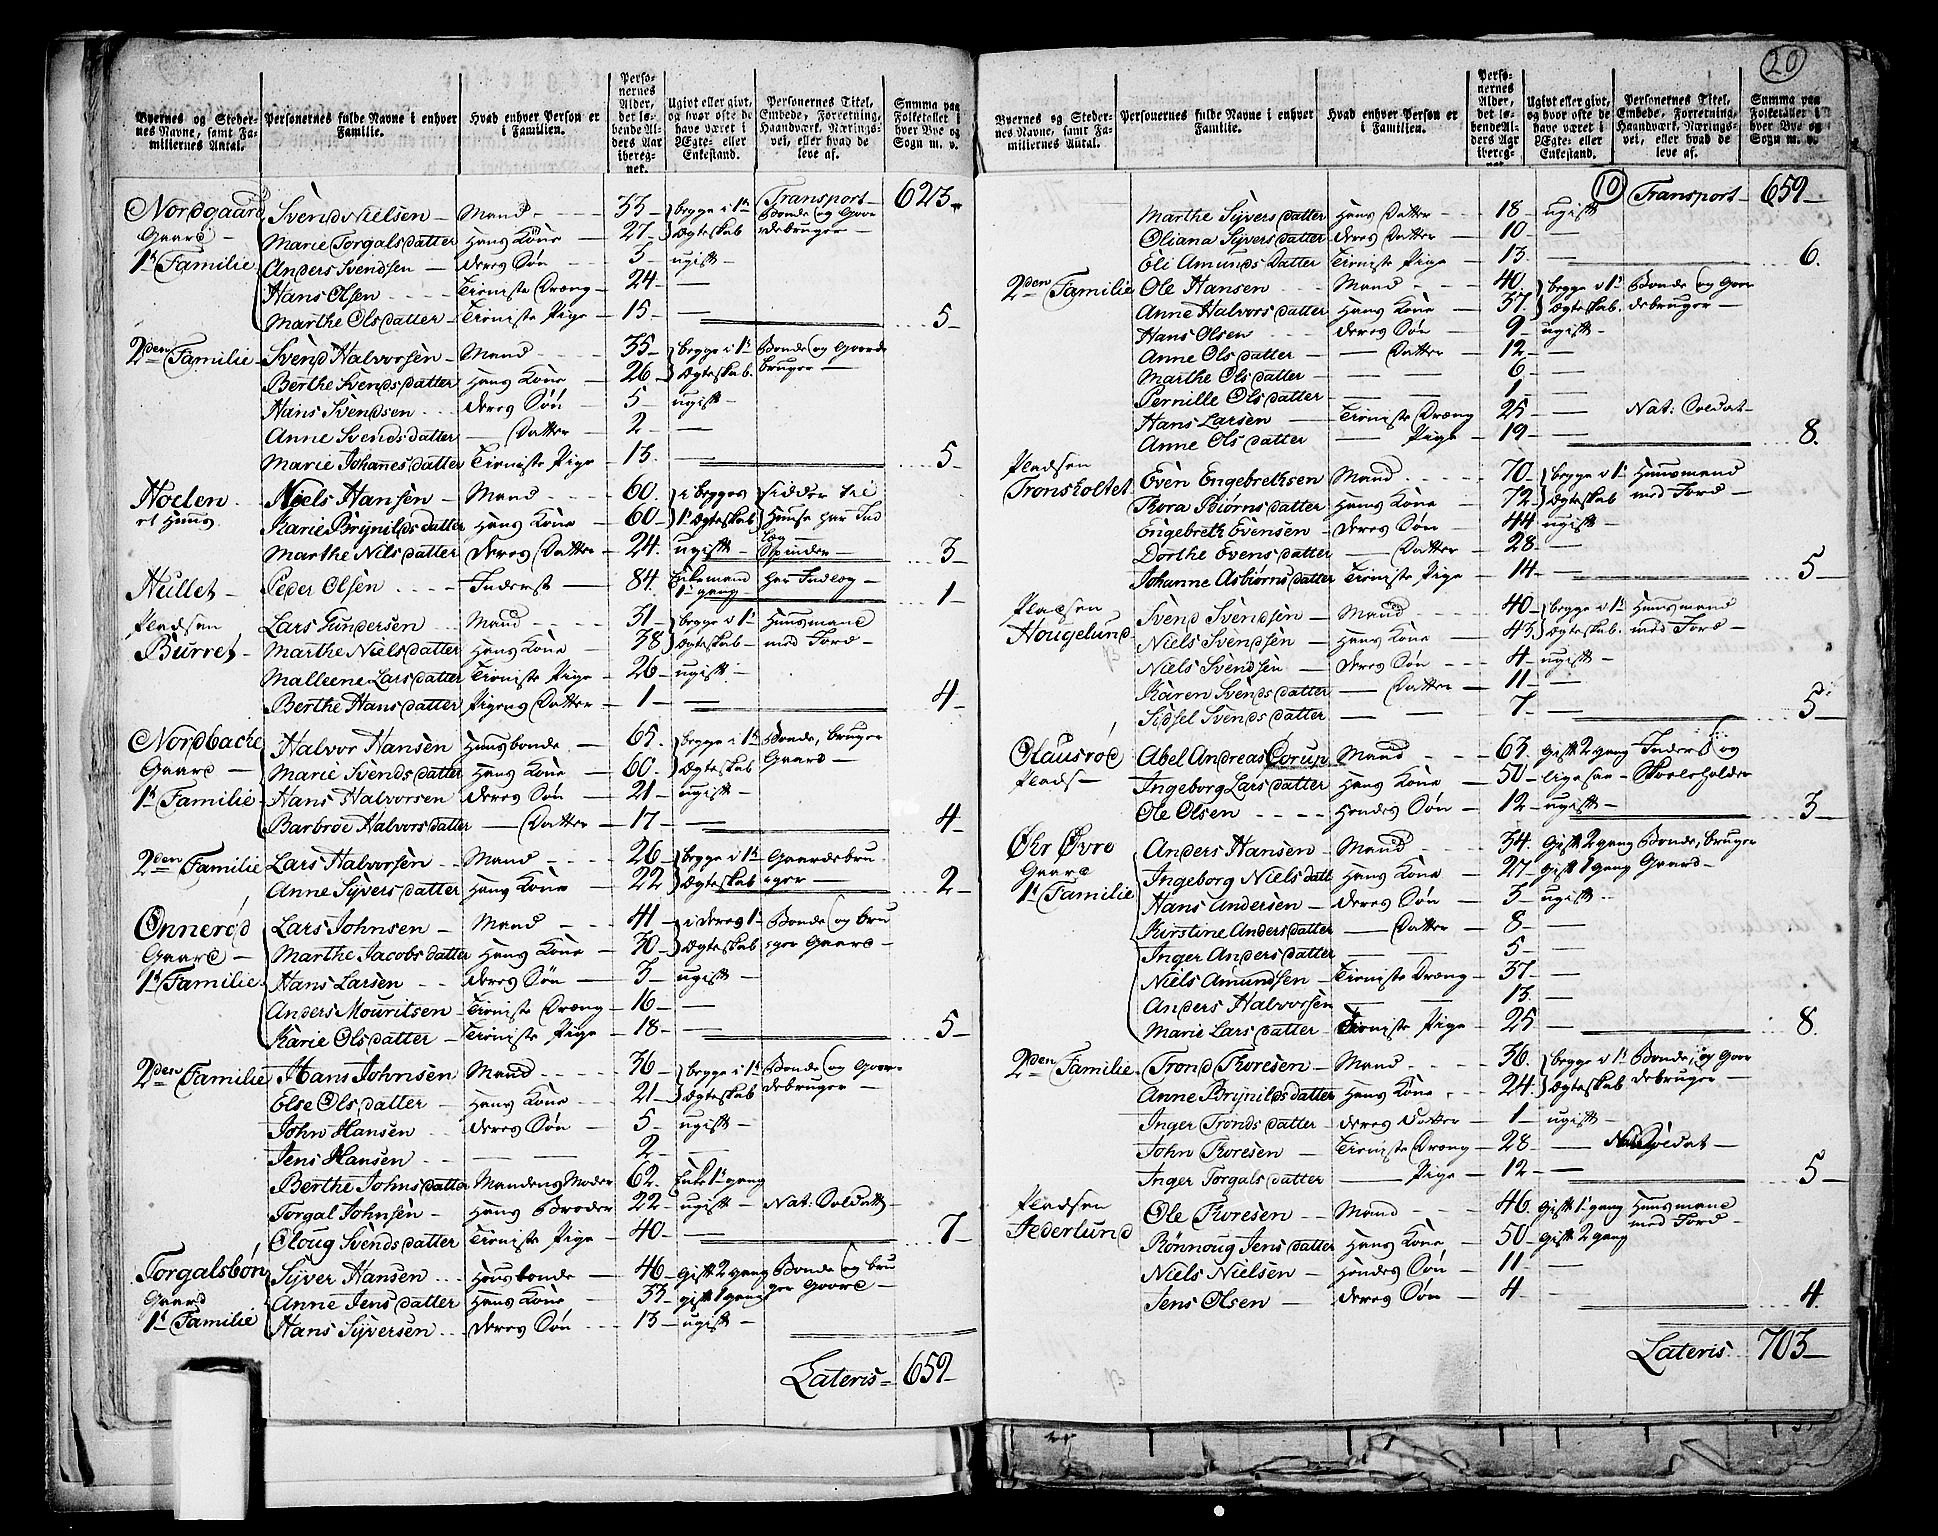 20
Byernes og Stedernes Navne, samt Familiernes Antal. Personernes fulde Navne i enhver Familie. Hvad enhver Person er i Familien. Personernes Alder, det løbende Alders Aar iberegnet. Ugivt eller givt, og hvor ofte de have været i Ægte- eller Enkestand. Personernes Titel, Embede, Forretning, Haandværk, Næringsvei, eller hvad de leve af. Summa paa Folketallet i hver Bye og Sogn m. v.
Transport 623
Nordgaard Svend Nielsen Mand 33 begge i 1te Bonde og Gaar
Gaard Marie Torgalsdatter Hans Kone 27 Ægteskab debruger
1te Familie Anders Svendsen deres Søn 3 ugift
Hans Olsen Tieniste Dræng 24 —
Marthe Olsdatter Tieniste Pige 15 — 5
2den Familie Svend Halvorsen Mand 35 begge i 1te Bonde og Gaarde
Berthe Svendsdatter Hans Kone 26 Ægteskab. bruger
Hans Svendsen deres Søn 5 ugift
Anne Svendsdatter — Datter 2 —
Marie Johannesdatter Tieniste Pige 13 — 5
Hoelen Niels Hansen Mand 60 i begges sidder til
et Huus Karie Brynildsdatter Hans Kone 60 1te Ægteskab Huuse har Ind
Marthe Nilsdatter deres Datter 24 ugift læg Spinder 3
Hullet Peder Olsen Inderst 84 Enkemand 1te gang har Indlæg 1
Pladsen Lars Gundersen Mand 31 begge i 1te Huusmand
Burret Marthe Nielsdatter Hans Kone 38 Ægteskab med Jord
Malleene Larsdatter Tieniste Pige 26 ugift
Berthe Hansdatter Pigens Datter 1 — 4
Nordbache Halvor Hansen Huusbonde 65 begge i 1te Bonde, bruger
Gaard Marie Svendsdatter Hans Kone 60 Ægteskab Gaard
1te Familie Hans Halvorsen deres Søn 21 ugift
Barbroe Halvorsdatter — Datter 17 — 4
2den Familie Lars Halvorsen Mand 26 begge i 1te Gaardebru
Anne Syversdatter Hans Kone 22 Ægteskab ger 2
Onnerød Lars Johnsen Mand 41 i deres 1te Bonde og bru
Gaard Marthe Jacobsdatter Hans Kone 30 Ægteskab ger Gaard
1te Familie Hans Larsen deres Søn 3 ugift
Anders Mouritsen Tieniste Dræng 16 —
Karie Olsdatter Tieniste Pige 18 — 5
2den Familie Hans Johnsen Mand 36 begge i 1te Bonde og Gaar
Else Olsdatter Hans Kone 21 Ægteskab debruger
John Hansen deres Søn 5 ugift
Jens Hansen — — 2 —
Berthe Johnsdatter Mandens Moder 62 Enke 1te gang
Torgal Johnsen Hans Broder 22 ugift Nat: Soldat
Oloug Svendsdatter Tieniste Pige 40 — 7
Torgalsbøn Syver Hansen Huusbonde 46 gift 2 gang Bonde og bru
Gaard Anne Jensdatter Hans Kone 33 gift 1 gang ger Gaard
1te Familie Hans Syversen deres Søn 13 ugift
Lateris 659
Byernes og Stedernes Navne, samt Familiernes Antal. Personernes fulde Navne i enhver Familie. Hvad enhver Person er i Familien. Personernes Alder, det løbende Alders Aar iberegnet. Ugivt eller givt, og hvor ofte de have været i Ægte- eller Enkestand. Personernes Titel, Embede, Forretning, Haandværk, Næringsvei, eller hvad de leve af. Summa paa Folketallet i hver Bye og Sogn m. v.
10 Transport 659
Marthe Syversdatter Hans Datter 18 ugift
Oliana Syversdatter deres Datter 10 —
Eli Amundsdatter Tieniste Pige 13 — 6
2den Familie Ole Hansen Mand 40 begge i 1te Bonde og Gaar
Anne Halvorsdatter Hans Kone 37 Ægteskab. debruger
Hans Olsen deres Søn 9 ugift
Anne Olsdatter — Datter 12 —
Marthe Olsdatter — — 6 —
Pernille Olsdatter — — 1 —
Hans Larsen Tieniste Dræng 25 — Nat: Soldat
Anne Olsdatter — Pige 19 — 8
Pladsen Even Engebrethsen Mand 70 begge i 1te Huusmand
Tronsholtet Thora Biørnsdatter Hans Kone 72 Ægteskab med Jord
Engebreth Evensen deres Søn 44 ugift
Dorthe Evensdatter — Datter 28 —
Johanne Asbiørnsdatter Tieniste Pige 14 — 5
Pladsen Svend Svendsen Mand 40 begge i 1te Huusmand
Hougelund Niels Svendsen Hans Kone 43 Ægteskab. med Jord
Niels Svendsen deres Søn 4 ugift
Karen Svendsdatter — Datter 11 —
Sidsel Svendsdatter — — 7 — 5
Olausrød Abel Andreas Corup Mand 63 gift 2 gang Inderst og
Plads Ingeborg Larsdatter Hans Kone 50 ligesaa Skoleholder
Ole Olsen Hendes Søn 12 ugift 3
Øhr Øvre Anders Hansen Mand 34 gift 2 gang Bonde, bruger
Gaard Ingeborg Nielsdatt Hans Kone 27 gift 1 gang Gaard
1te Familie Hans Andersen deres Søn 3 ugift
Kirstine Andersdatter — Datter 8 —
Inger Andersdatter — — 5 —
Niels Amundsen Tieniste Dræng 37 —
Anders Halvorsen — — 13 —
Marie Larsdatter Tieniste Pige 25 — 8
2den Familie Trond Thoresen Mand 36 begge i 1te Bonde, og Gaar
Anne Brynildsdatter Hans Kone 24 Ægteskab debruger
Inger Trondsdatter deres Datter 1 ugift
John Thoresen Tieniste Dræng 28 — Nat Soldat
Inger Torgalsdatter — Pige 12 — 5
Pladsen Ole Thoresen Mand 46 gift 1te gang Huusmand
Jederlund Rønnoug Jensdatter Hans Kone 50 gift 2 gang med Jord
Niels Nielsen Hendes Søn 11 —
Jens Olsen deres Søn 4 — 4
Lateris 703